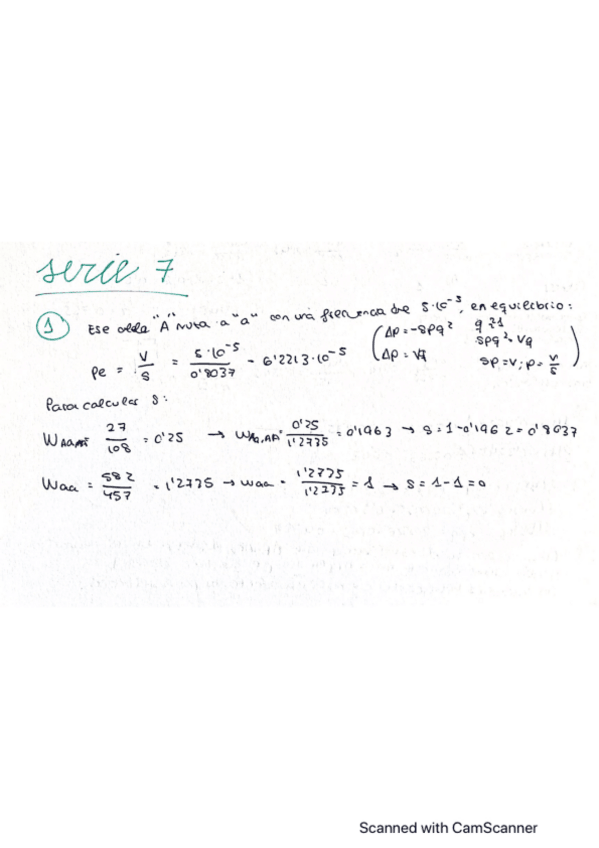 serie 7
① Ese alelo "A" muta a "a" con una frecuencia de 5·10⁻⁵, en equilibrio:
pe = v/s = 5·10⁻⁵/0'8037 = 6'2213·10⁻⁵ (Δp = -spq² q≈1
Δp = vq spq² = vq
sp = v; p = v/s)
Para calcular s:
27/108 = 0'25 → = 0'25/1'2735 = 0'1963 → s = 1-0'1962 = 0'8037
Waa = 582/457 = 1'2735 → waa = 1'2735/1'2735 = 1 → s = 1-1 = 0
Scanned with CamScanner